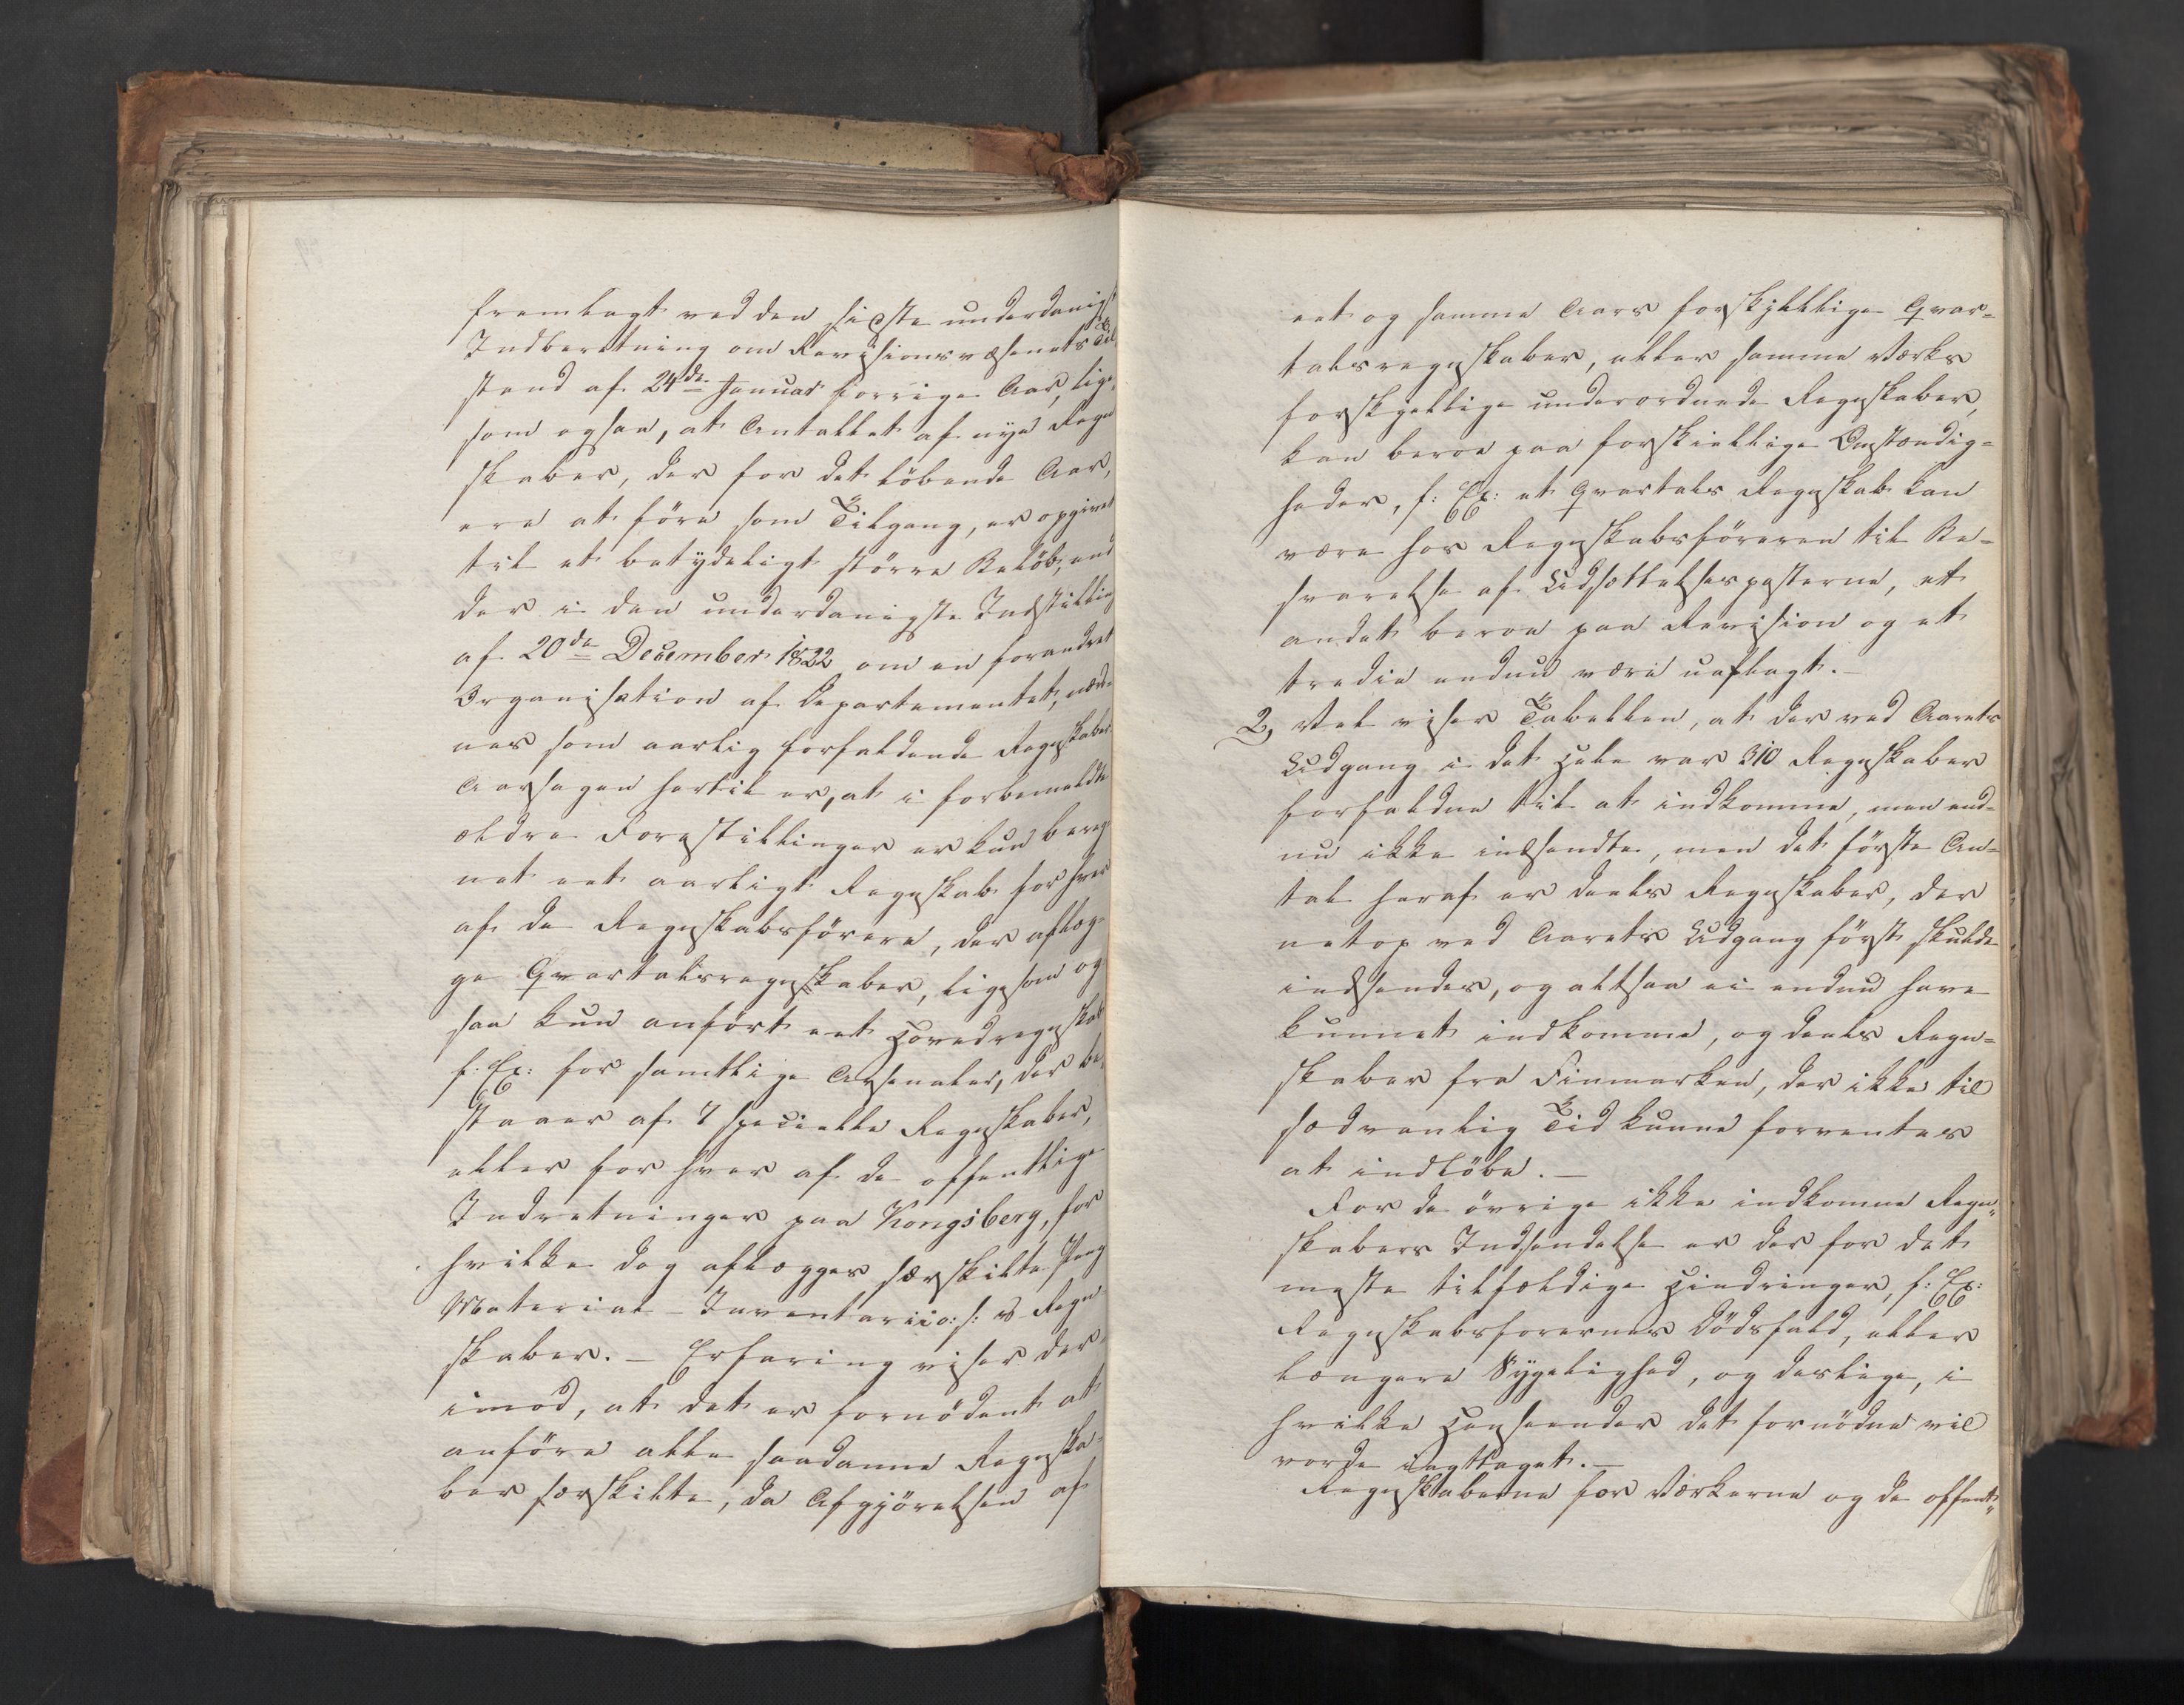 fremlagt ved den sidste underdanigst
Indberetning om Revisionsvæsenets Til
stand af 24de Januar forrige Aar, lige¬
som ogsaa, at Antallet af nye Regn
skaber, der for det löbende Aar,
ere at före som Tilgang, er opgivet
til et betydeligt större Belöb, end
der i den underdanigste Indstilling
af 20de December 1822 om en forandret
Organisation af Departementet, næv¬
nes som aarlig forfaldende Regnskaber.
Aarsagen hertil er, at i forbemeldte
ældre Forestillinger er kun bereg
net eet aarligt Regnskab for hver
af de Regnskabsförere, der aflæg¬
ge Qvartalsregnskaber, ligesom og
saa kun anfört eet Hovedregnskab
f: Ex: for samtlige Arsenaler, der be¬
staaer af 7 specielle Regnskaber,
eller for hver af de offentlige
Indretninger paa Kongsberg, for
hvilke dog aflægges særskilte Peng
Material- Inventarii o: s: v Regn
skaber. - Erfaring viser der¬
imod, at det er fornödent at
anföre alle saadanne Regnska¬
ber særskilte, da Afgjörelsen af
eet og samme Aars forskjellige Qvar¬
talsregnskaber, eller samme Værks
forskjellige underordnede Regnskaber,
kan beroe paa forskiellige Omstændig¬
heder, f: Ex: et Qvartals Regnskab kan
være hos Regnskabsföreren til Be¬
svarelse af Udsættelsesposterne, et
andet beroe paa Revision og et
tredie endnu være uaflagt. -
2, Vel viser Tabellen, at der ved Aarets
Udgang i det Hele var 310 Regnskaber
forfaldne til at indkomme, men end¬
nu ikke indsendte, men det förste An¬
tal heraf er deels Regnskaber, der
netop ved Aarets Udgang först skulde
indsendes, og altsaa ei endnu have
kunnet indkomme, og deels Regn¬
skaber fra Finmarken, der ikke til
sædvanlig Tid kunne forventes
at indlöbe. -
For de övrige ikke indkomne Regn¬
skabers Indsendelse er der for det
meste tilfældige Hindringer, f: Ex:
Regnskabsforernes Dödsfald, eller
længere Sygelighed, og deslige, i
hvilke Henseender det fornödne vil
vorde iagttaget. -
Regnskaberne for Værkerne og de offent¬